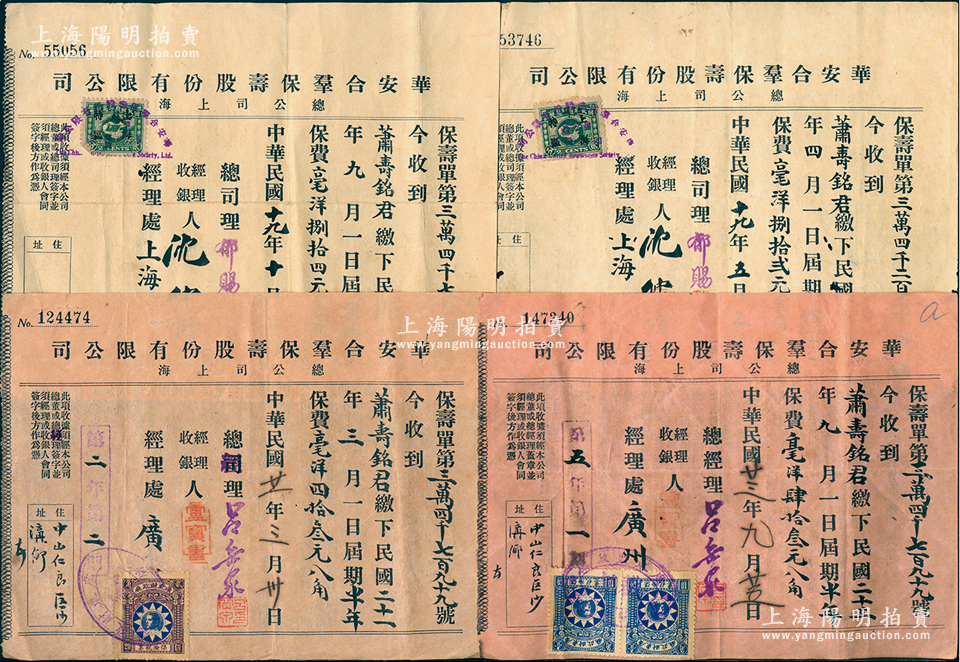 上海陽明拍賣
www.yangmingauction.com
No. 55056
華安合羣保壽股份有限公司
總公司上海
保壽單第三萬四千七
今收到
蕭壽銘君繳下民
年九月一日屆期
保費毫洋捌拾四元
中華民國十九年十
總司理
經理
收銀人
經理處上海
此項收據須經本公司
總董或總司理簽字並
須經理或收銀人會同
簽字後方作為憑
住址
53746
華安合羣保壽股份有限公司
總公司上海
保壽單第三萬四千二百
今收到
蕭壽銘君繳下民國
年四月一日屆期
保費毫洋捌拾弍元
中華民國十九年五
總司理
經理
收銀人
經理處上海
此項收據須經本公司
總董或總司理簽字並
須經理或收銀人會同
簽字後方作為憑
住址
No. 124474
華安合羣保壽股份有限公司
總公司上海
保壽單第三萬四千七百九十九號
今收到
蕭壽銘君繳下民國二十一
年三月一日屆期半年
保費毫洋四拾叁元八角
中華民國廿一年三月卅日
總經理 呂岳泉
經理
收銀人
經理處廣
此項收據須經本公司
總董或總經理簽字並
須經理或收銀人會同
簽字後方作為憑
住址
中山仁良區沙
溝鄉
147340
華安合羣保壽股份有限公司
總公司上海
保壽單第三萬四千七百九十九號
今收到
蕭壽銘君繳下民國二十
年九月一日屆期半年
保費毫洋肆拾叁元八角
中華民國廿三年九月
總經理 呂岳泉
經理
收銀人
經理處廣州
此項收據須經本公司
總董或總經理蓋章並
須經理或收銀人會同
簽字後方作為憑
住址
中山仁良區沙
溝鄉
上海陽明拍賣
www.yangmingauction.com
上海陽明拍賣
www.yangmingauction.com
上海陽明拍賣
www.yangmingauction.com